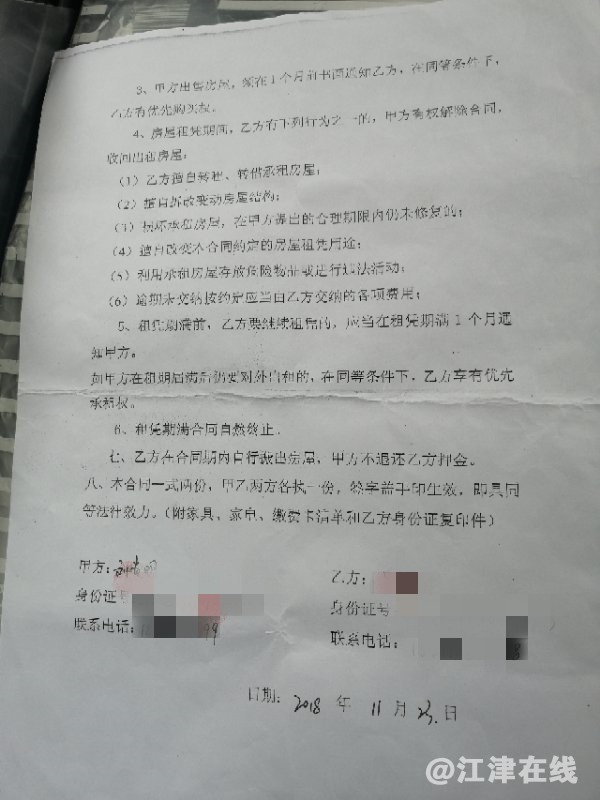 3、甲方出售房屋，须在1个月前书面通知乙方，在同等条件下，
乙方有优先购买权。
4、房屋租凭期间，乙方有下列行为之一的，甲方有权解除合同，
收回出租房屋；
（1）乙方擅自转租、转借承租房屋；
（2）擅自拆改变动房屋结构；
（3）损坏承租房屋，在甲方提出的合理期限内仍未修复的；
（4）擅自改变本合同约定的房屋租凭用途；
（5）利用承租房屋存放危险物品或进行违法活动；
（6）逾期未交纳按约定应当由乙方交纳的各项费用；
5、租凭期满前，乙方要继续租凭的，应当在租凭期满1个月通
知甲方。
如甲方在租期届满后仍要对外出租的，在同等条件下，乙方享有优先
承租权。
6、租凭期满合同自然终止。
七、乙方在合同期内自行搬出房屋，甲方不退还乙方押金。
八、本合同一式两份，甲乙两方各执一份，签字盖手印生效，即具同
等法律效力。（附家具、家电、缴费卡清单和乙方身份证复印件）
甲方：
乙方：
身份证号
身份证号
联系电话：
联系电话：
日期：2018 年 11 月 23 日
@江津在线